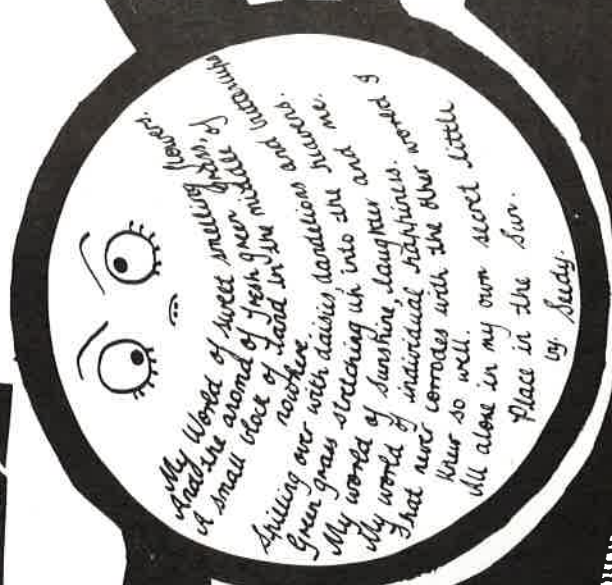 My World of sweet smelling flowers.
And the aroma of fresh green grass,
A small block of land in the middle of
nowhere
Spilling over with daisies dandelions and
Green grass stretching up into the heavens.
My world of Sunshine, laughter and me.
My world of individual happiness.
That never corrodes with the other world I
Knew so well.
All alone in my own secret little
Place in the Sun.
by. Seedy.